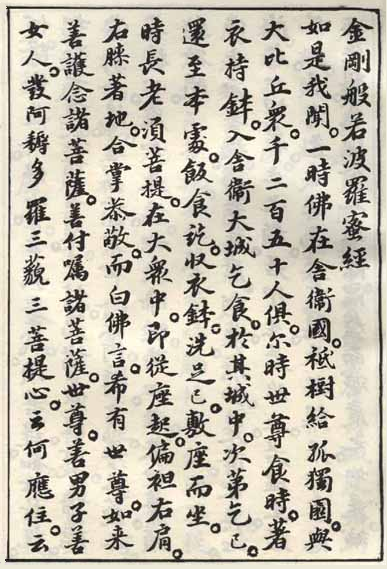 金剛般若波羅蜜經
如是我聞。一時佛在舍衛國。祇樹給孤獨園。與
大比丘衆。千二百五十人俱。尔時世尊食時。著
衣持鉢。入舍衛大城乞食。於其城中。次第乞已。
還至本處。飯食訖。收衣鉢。洗足已。敷座而坐。
時長老須菩提。在大衆中。即從座起。偏袒右肩。
右膝著地。合掌恭敬。而白佛言。希有世尊。如来
善護念諸菩薩。善付囑諸菩薩。世尊。善男子善
女人。發阿耨多羅三藐三菩提心。云何應住。云